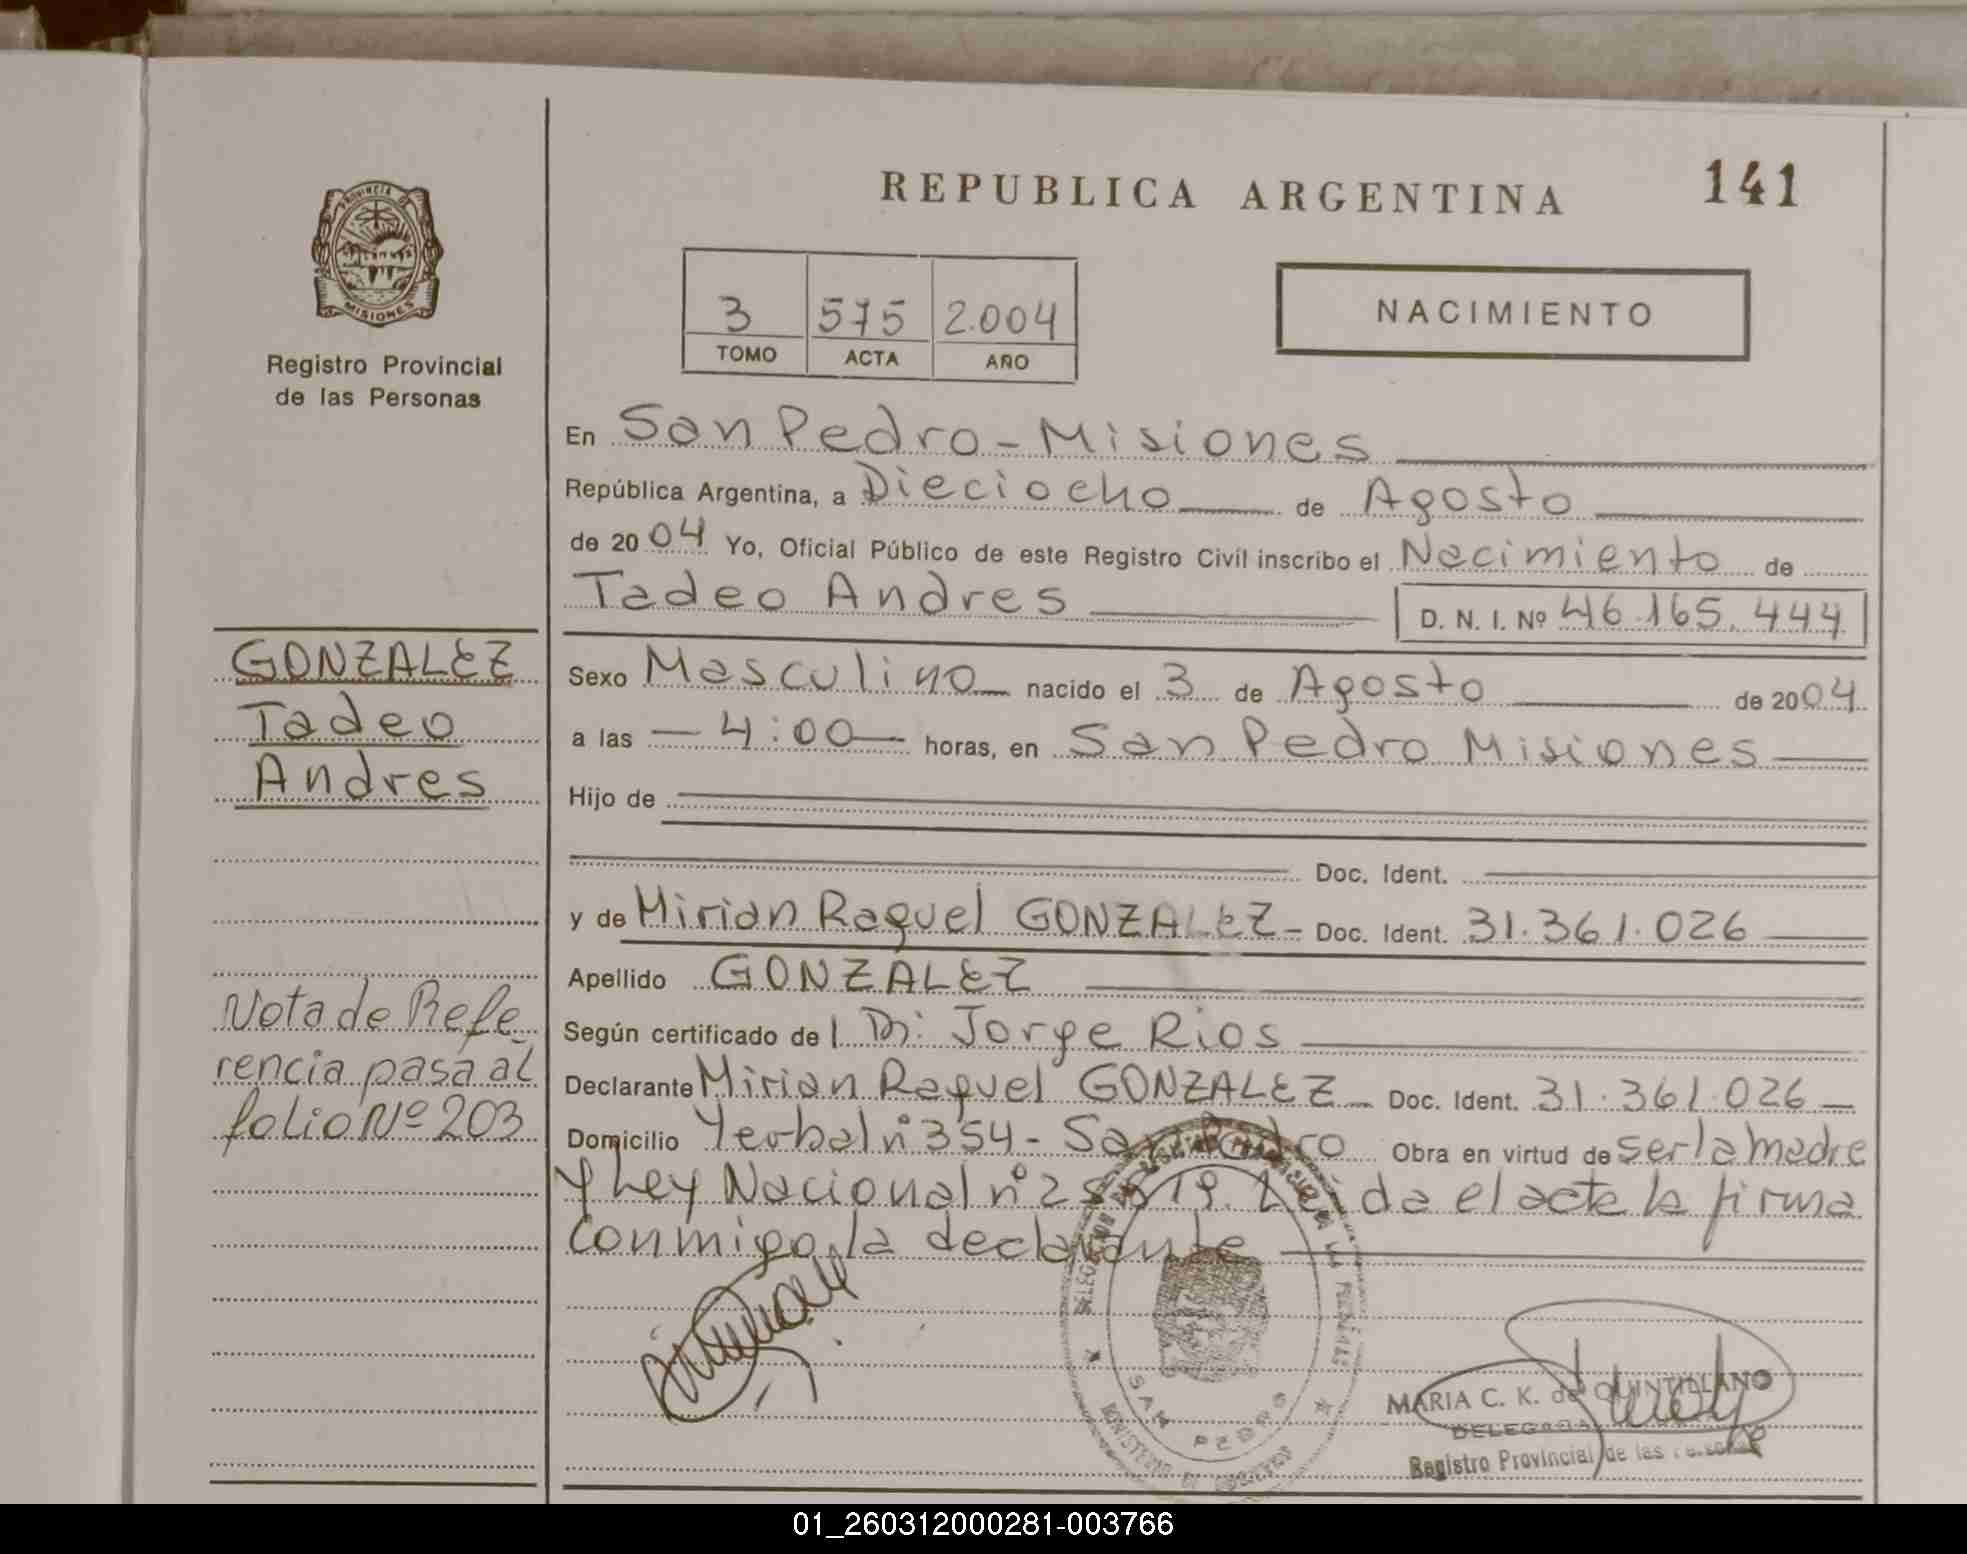 REPUBLICA ARGENTINA
141
PROVINCIA DE
MISIONES
Registro Provincial
de las Personas
3 575 2.004
TOMO ACTA AÑO
NACIMIENTO
En San Pedro - Misiones
República Argentina, a Dieciocho de Agosto
de 2004 Yo, Oficial Público de este Registro Civil inscribo el Nacimiento de
Tadeo Andres D. N. I. Nº 46.165.444
GONZALEZ
Tadeo
Andres
Sexo Masculino nacido el 3 de Agosto de 2004
a las — 4:00 — horas, en San Pedro Misiones
Hijo de
Doc. Ident.
y de Mirian Raquel GONZALEZ - Doc. Ident. 31.361.026
Apellido GONZALEZ
Nota de Refe-
rencia pasa al
folio Nº 203
Según certificado de l Dr. Jorge Rios
Declarante Mirian Raquel GONZALEZ - Doc. Ident. 31.361.026 -
Domicilio Yerbal nº 354 - San Pedro Obra en virtud de ser la madre
y Ley Nacional nº 2 Leída el acte la firma
conmigo, la declarante
SAN PEDRO
MARIA C. K. de QUINTILLANO
DELEGADA
Registro Provincial de las Personas
01_260312000281-003766